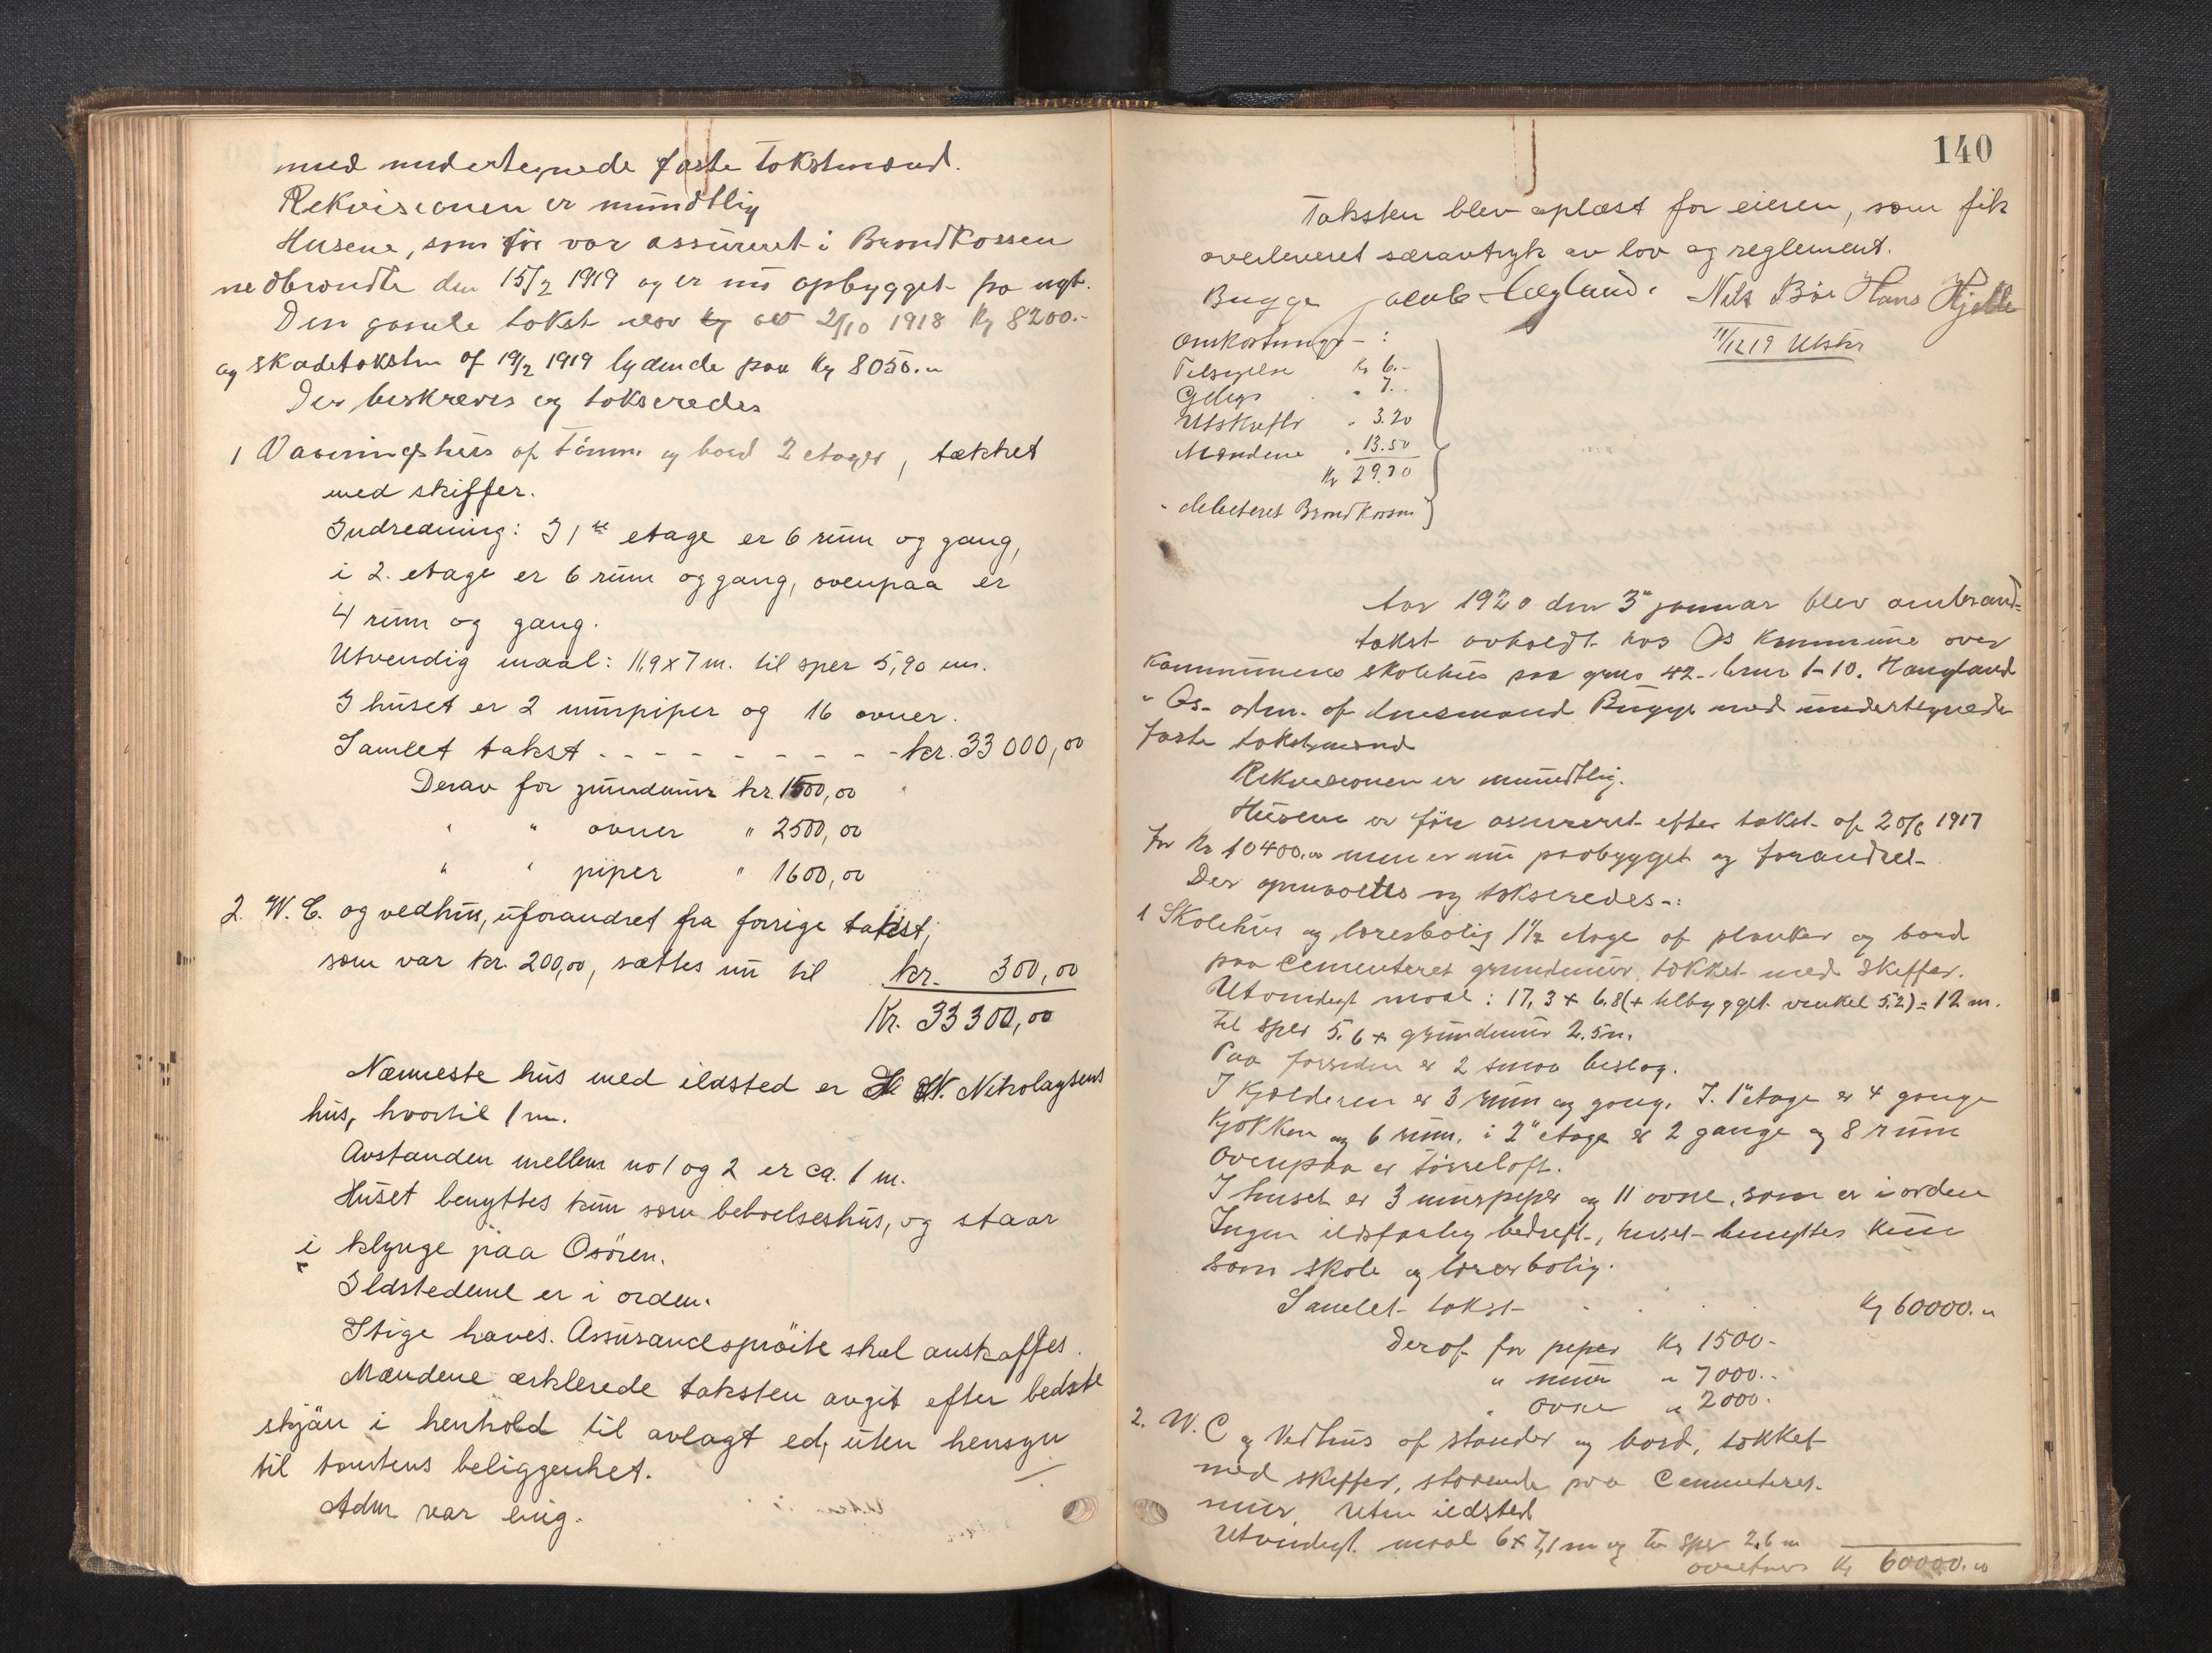 med undertegnede faste takstmænd.
Rekvisionen er mundtlig
Husene, som før var assureret i Brandkassen
nedbrændte den 15/2 1919 og er nu opbygget fra nyt.
Den gamle takst var av 2/10 1918 Kr 8200.-
og skadetaksten af 19/2 1919 lydende paa Kr 8050.-
Der beskreves og takseredes
1 Vaaningshus af Tømm. og bord 2 etager, tækket
med skiffer.
Indredning: I 1ste etage er 6 rum og gang,
i 2. etage er 6 rum og gang, ovenpaa er
4 rum og gang.
Utvendig maal: 11,9 x 7 m. til sper 5,90 m.
I huset er 2 murpiper og 16 ovner.
Samlet takst - - - - - - - - kr. 33 000,00
Derav for grundmur kr. 1500,00
" " ovner " 2500,00
" " piper " 1600,00
2. W.C. og vedhus, uforandret fra forrige takst,
som var kr. 200,00, sættes nu til kr. 300,00
Kr. 33 300,00
Nærmeste hus med ildsted er N. Nikolaysens
hus, hvortil 1 m.
Avstanden mellem no 1 og 2 er ca. 1 m.
Huset benyttes kun som beboelseshus, og staar
i klynge paa Osøren.
Ildstedene er i orden.
Stige haves. Assurancesprøite skal anskaffes.
Mændene erklærede taksten avgit efter bedste
skjøn i henhold til avlagt ed, uten hensyn
til tomtens beliggenhet.
Adm var enig.
140
Taksten blev oplæst for eieren, som fik
overleveret særavtryk av lov og reglement.
Bugge Jacob Hegland. Nils Bøe Hans Hjelle
11/12 19 Utskr
Omkostninger - :
Tilsigelse Kr 6.-
Gebyr " 7.-
Utskrifter " 3.20
Mændene " 13.50
Kr 29.70
- debiteret Brandkassen
Aar 1920 den 3' januar blev ombrand-
takst avholdt hos Os Kommune over
Kommunens skolehus paa grno 42- brnr 1-10. Haugland
i Os- adm. af lensmand Bugge med undertegnede
faste takstmænd
Rekvisionen er mundtlig.
Husene er før assureret efter takst af 20/6 1917
for Kr 10400.00 men er nu paabygget og forandret-
Der opmaaltes og takseredes-:
1 Skolehus og lærerbolig 1½ etage af planker og bord
paa Cementeret grundmur, tækket med Skiffer.
Utvendigt maal: 17,3 x 6.8 (+ tilbygget vinkel 5.2) = 12 m.
til sper 5.6 x grundmur 2.5 m.
Paa forsiden er 2 smaa beslag.
I Kjælderen er 3 rum og gang. I. 1' etage er 4 gange
Kjøkken og 6 rum. i 2' etage er 2 gange og 8 rum
Ovenpaa er tørreloft.
I huset er 3 murpiper og 11 ovne, som er i orden
Ingen ildsfarlig bedrift-, huset- benyttes kun
som skole og lærerbolig.
Samlet- takst- Kr 60000.00
Deraf for piper Kr 1500-
" mur " 7000.-
" ovne " 2000.
2. W.C og Vedhus af stander og bord, tækket
med skiffer, staaende paa Cementeret-
mur, uten ildsted
Utvendigt maal 6 x 7,1 m og til Sper 2,6 m
overføres Kr 60000.00